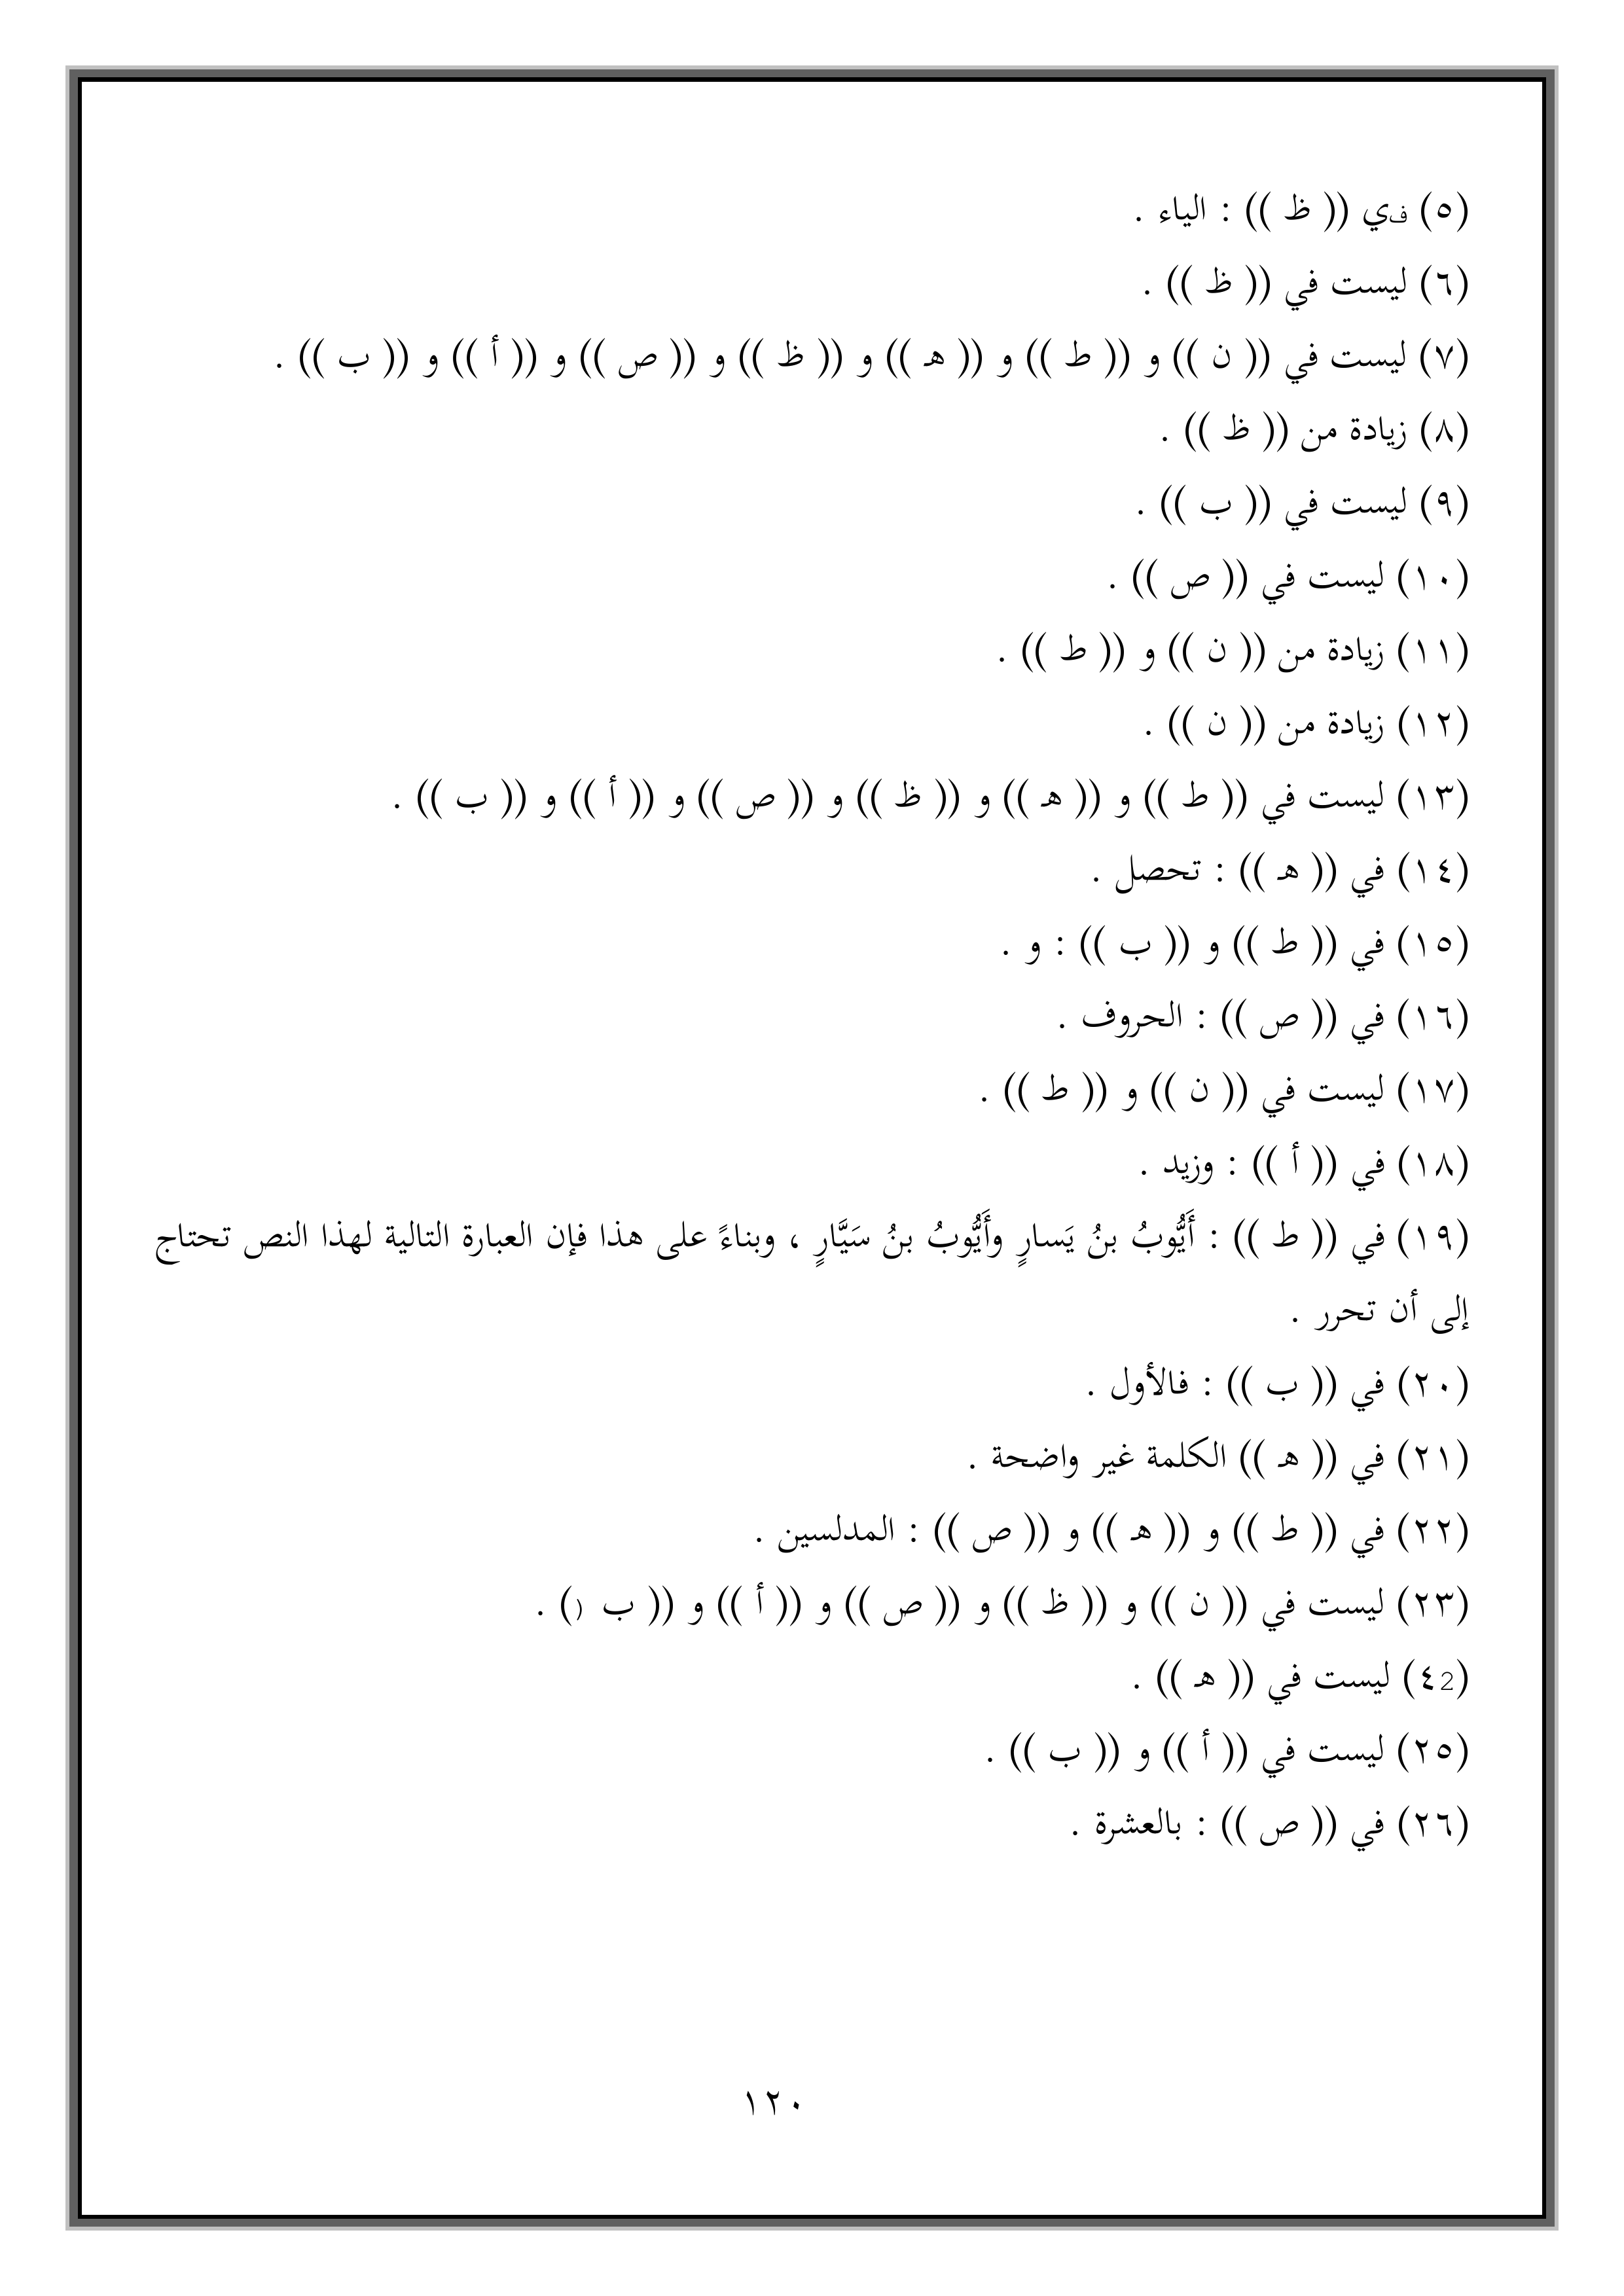 (٥) في (( ظ )) : الياء .
(٦) ليست في (( ظ )) .
(٧) ليست في (( ن )) و (( ط )) و (( هـ )) و (( ظ )) و (( ص )) و (( أ )) و (( ب )) .
(٨) زيادة من (( ظ )) .
(٩) ليست في (( ب )) .
(١٠) ليست في (( ص )) .
(١١) زيادة من (( ن )) و (( ط )) .
(١٢) زيادة من (( ن )) .
(١٣) ليست في (( ط )) و (( هـ )) و (( ظ )) و (( ص )) و (( أ )) و (( ب )) .
(١٤) في (( هـ )) : تحصل .
(١٥) في (( ط )) و (( ب )) : و .
(١٦) في (( ص )) : الحروف .
(١٧) ليست في (( ن )) و (( ط )) .
(١٨) في (( أ )) : وزيد .
(١٩) في (( ط )) : أَيُّوبُ بنُ يَسارٍ وأَيُّوبُ بنُ سَيَّارٍ ، وبناءً على هذا فإن العبارة التالية لهذا النص تحتاج
إلى أن تحرر .
(٢٠) في (( ب )) : فالأول .
(٢١) في (( هـ )) الكلمة غير واضحة .
(٢٢) في (( ط )) و (( هـ )) و (( ص )) : المدلسين .
(٢٣) ليست في (( ن )) و (( ظ )) و (( ص )) و (( أ )) و (( ب )) .
(2٤) ليست في (( هـ )) .
(٢٥) ليست في (( أ )) و (( ب )) .
(٢٦) في (( ص )) : بالعشرة .
١٢٠